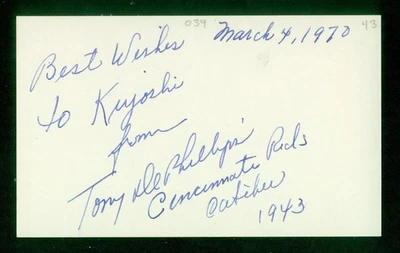 034
43
March 4, 1970
Best Wishes
to Kiyoshi
from
Tony DePhillips
Cincinnati Reds
Catcher
1943